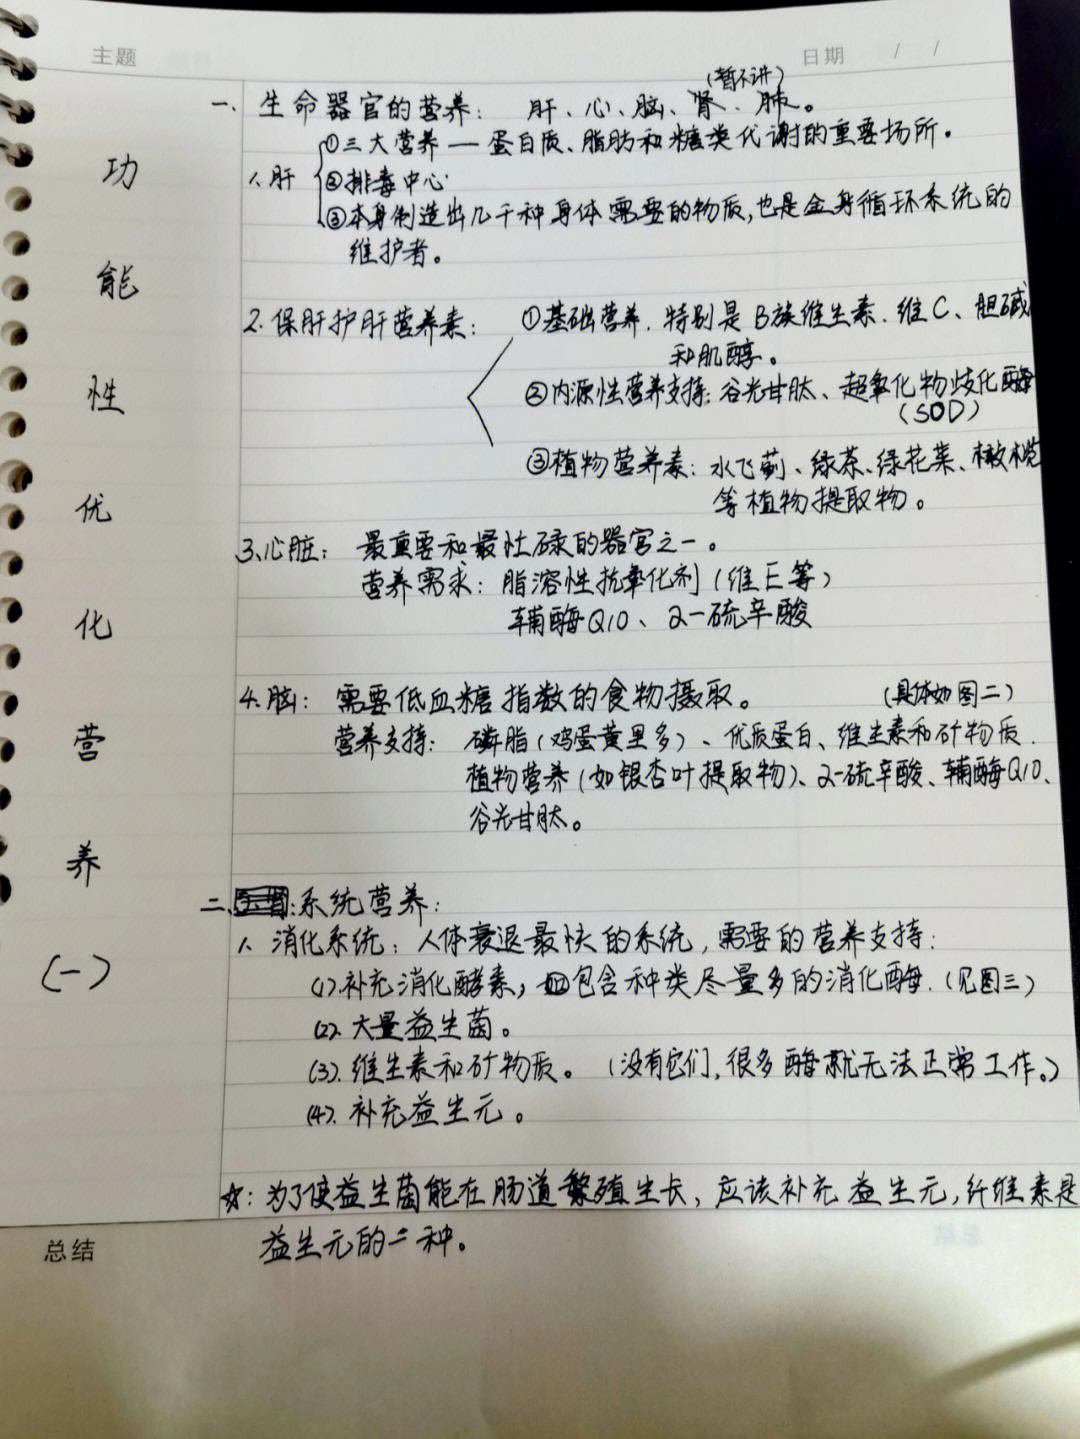 主题
日期 / /
功能性优化营养(一)
(暂不讲)
一、生命器官的营养： 肝、心、脑、肾、肺。
①三大营养—蛋白质、脂肪和糖类代谢的重要场所。
1、肝 ②排毒中心
③本身制造出几千种身体需要的物质,也是全身循环系统的
维护者。
2. 保肝护肝营养素： ①基础营养. 特别是B族维生素. 维C、胆碱
和肌醇。
②内源性营养支持：谷光甘肽、超氧化物歧化酶
(SOD)
③植物营养素：水飞蓟、绿茶、绿花菜、橄榄
等植物提取物。
3、心脏： 最重要和最忙碌的器官之一。
营养需求：脂溶性抗氧化剂(维E等)
辅酶Q10、2-硫辛酸
4. 脑： 需要低血糖指数的食物摄取。 (具体如图二)
营养支持： 磷脂(鸡蛋黄里多)、优质蛋白、维生素和矿物质.
植物营养(如银杏叶提取物)、2-硫辛酸、辅酶Q10、
谷光甘肽。
二、:系统营养：
1、消化系统：人体衰退最快的系统, 需要的营养支持：
(1).补充消化酵素, 包含种类尽量多的消化酶. (见图三)
(2). 大量益生菌。
(3). 维生素和矿物质。(没有它们, 很多酶就无法正常工作。)
(4). 补充益生元。
☆：为了使益生菌能在肠道繁殖生长, 应该补充益生元, 纤维素是
益生元的一种。
总结